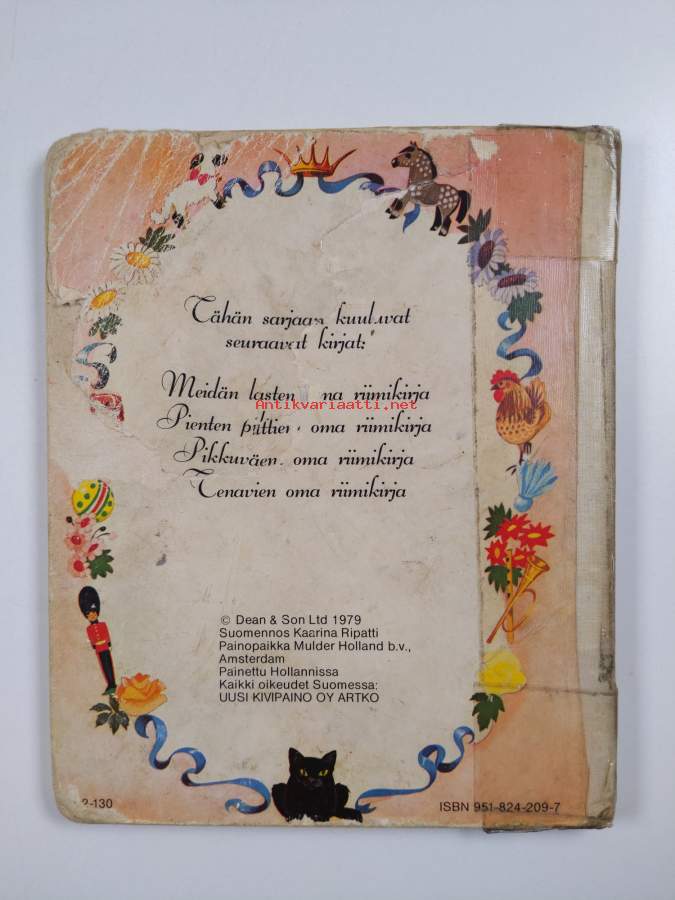 Tähän sarjaan kuuluvat
seuraavat kirjat:
Meidän lasten na riimikirja
Antikvariaatti.net
Pienten oma riimikirja
Pikkuväen oma riimikirja
Tenavien oma riimikirja
© Dean & Son Ltd 1979
Suomennos Kaarina Ripatti
Painopaikka Mulder Holland b.v.,
Amsterdam
Painettu Hollannissa
Kaikki oikeudet Suomessa:
UUSI KIVIPAINO OY ARTKO
2-130
ISBN 951-824-209-7